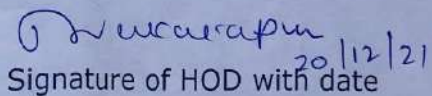 20/12/21
Signature of HOD with date